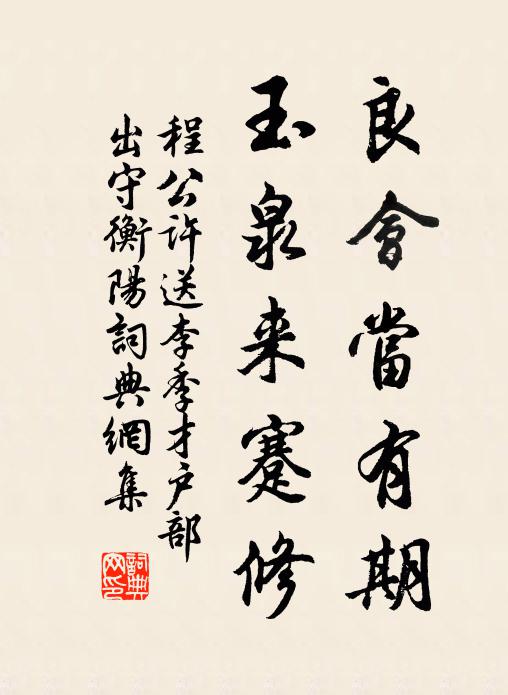 良會當有期
玉泉来蹇修
程公许送李季才户部
出守衡陽詞典網集
詞典
网印